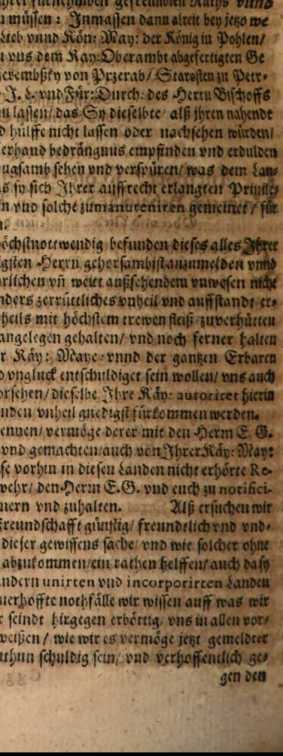 n müssen: Inmassen dann alreit bey jetzo we
Kön: May: der König in Pohlen/
vns dem Kay: Oberambt abgefertigten Ge
zerembßky von Przerab/ Starosten zu Petr-
J. L. vnd Für: Durch: des Herrn Bischoffs
n lassen/ das Sy dieselbte/ alß ihren nahendt
d hülffe nicht lassen oder nachsehen würden/
erhand bedrängnus empfinden vnd erdulden
ugsamb sehen vnd verspüren/ was dem Lan-
s sy sich Ihrer auffrecht erlangten Privile-
n vnd solche zumanuteniren gemeinet/ für
n.
öchstnottwendig befunden dieses alles Ihrer
gsten Herrn gehorsambist anzumelden vnnd
rlichen vñ weit außsehendem vnwesen nicht
nders zerrüttliches vnheil vnd auffstandt et-
theils mit höchstem trewen fleiß zuverhütten
angelegen gehalten/ vnd noch ferner halten
r Käy: Maye: vnnd der gantzen Erbaren
d vngluck entschuldiget sein wollen/ vns auch
orsehen/ dieselbe Ihre Käy: autoritet hierin
nden vnheil gnedigst fürkommen werden.
ennen/ vermöge derer mit den Herrn E. G.
vnd gemachten/ auch von Ihrer Käy: May:
se vorhin in diesen Landen nicht erhörte Re-
wehr/ den Herrn E. G. vnd euch zu notifici-
nern vnd zuhalten. Alß ersuchen wir
Freundschafft günstig/ freundtlich vnd vnd-
dieser gewissens sache/ vnd wie solcher ohne
abzukommen/ ein rathen helffen/ auch da sy
ndern unirten vnd incorporirten Landen
uerhoffte nothfälle wir wissen auff was wir
r seindt hirgegen erböttig/ vns in allen vor-
weißen/ wie wir es vermöge jetzt gemeldter
uthun schuldig sein/ vnd verhoffentlich ge-
gen den